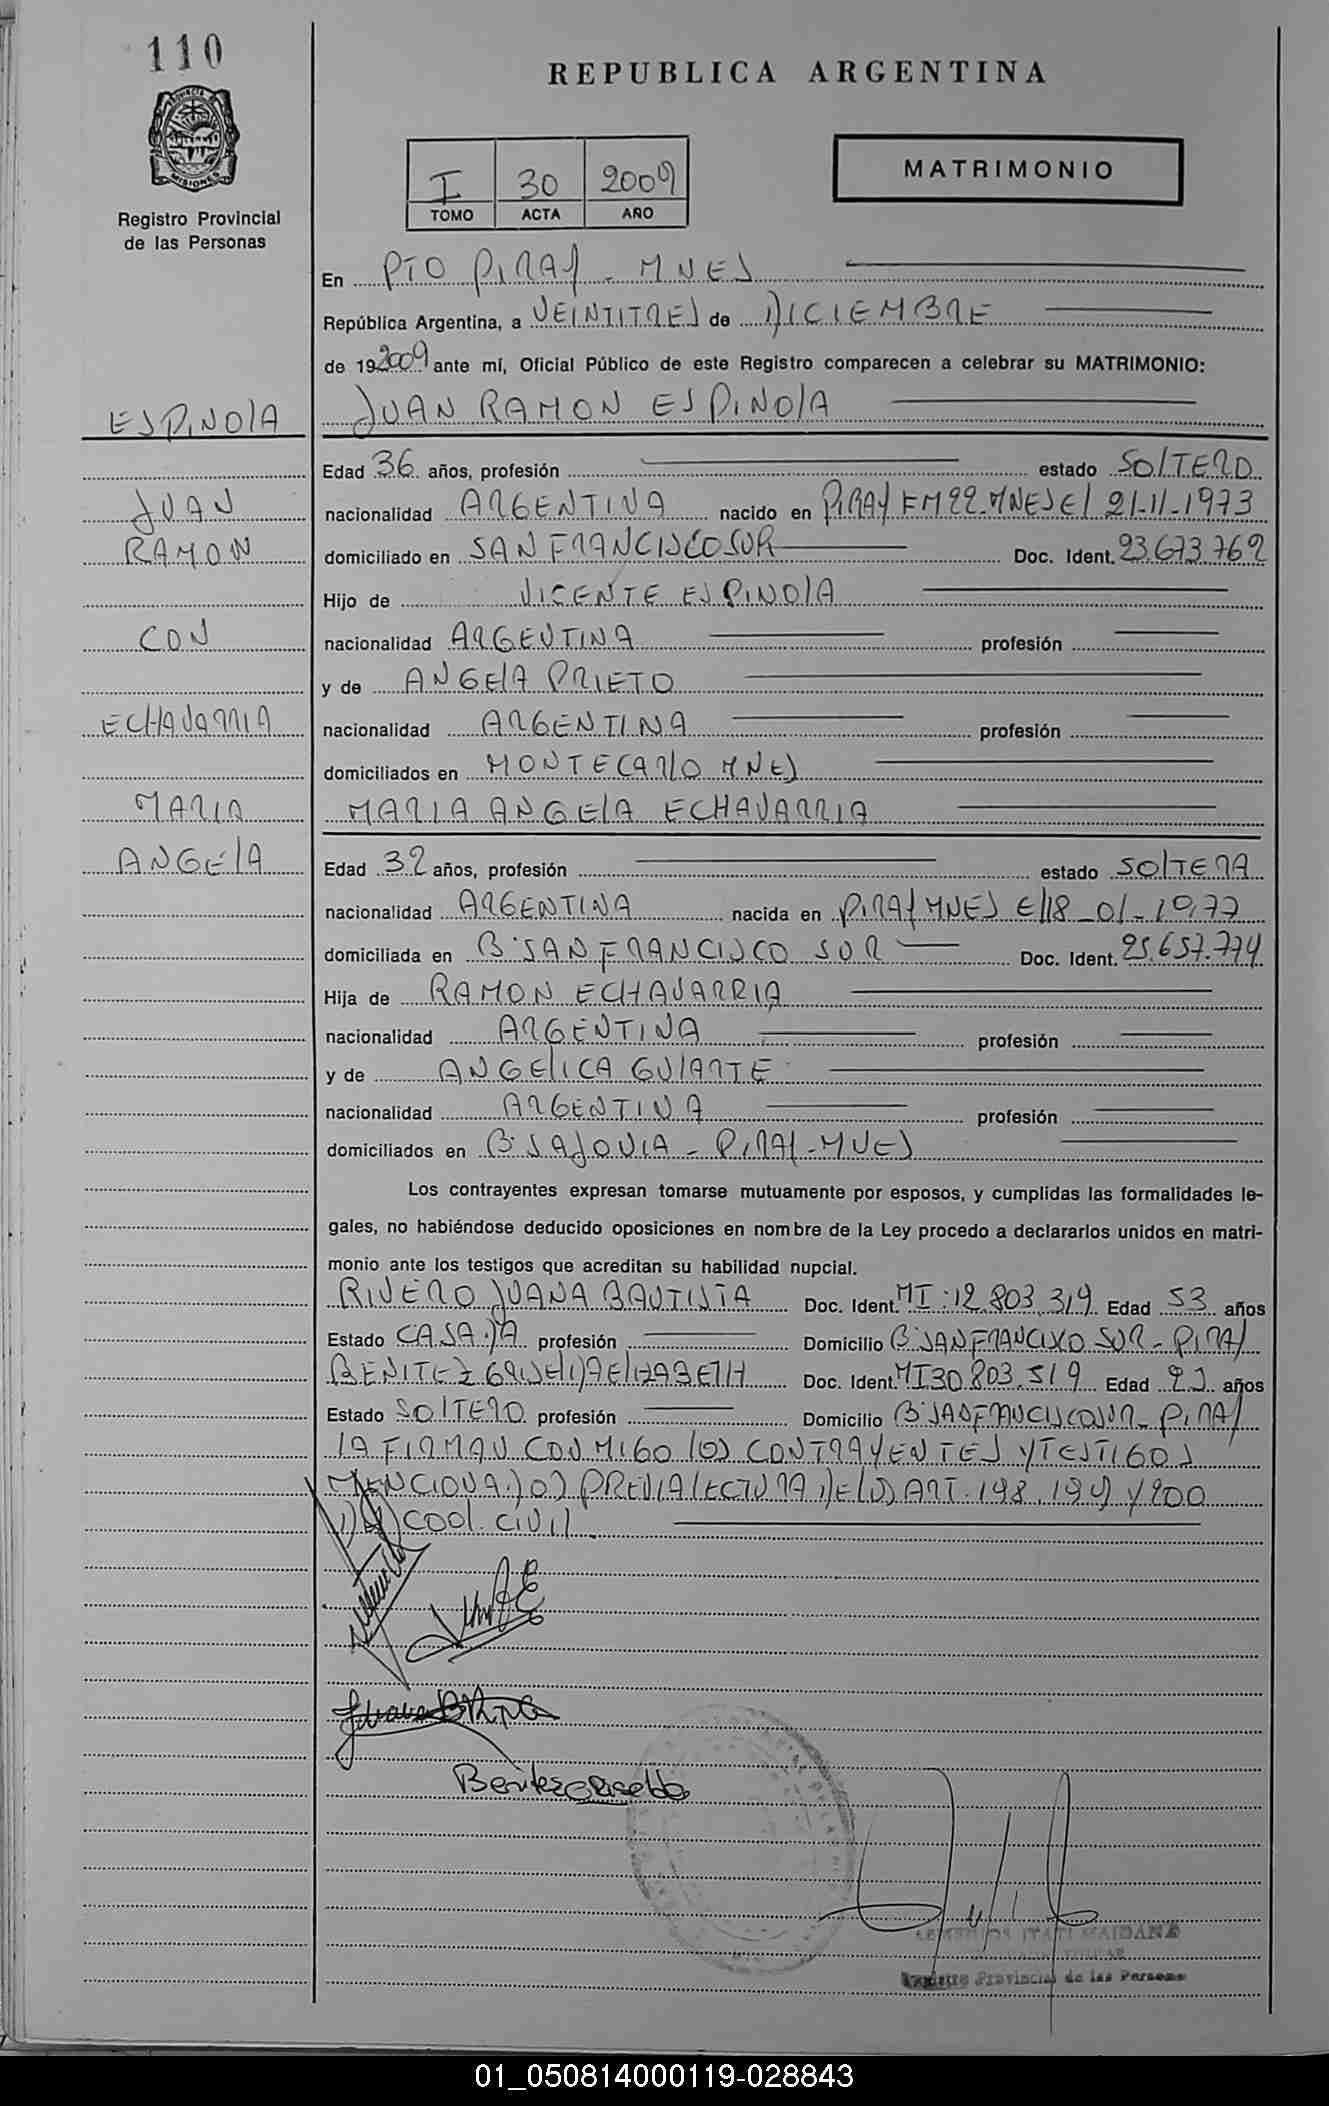 110
PROVINCIA
MISIONES
Registro Provincial
de las Personas
REPUBLICA ARGENTINA
I 30 2009
TOMO ACTA AÑO
MATRIMONIO
En PTO PIRAY - MNES
República Argentina, a VEINTITRES de DICIEMBRE
de 19 2009 ante mí, Oficial Público de este Registro comparecen a celebrar su MATRIMONIO:
ESPINOlA
JUAN RAMON ESPINOlA
Edad 36 años, profesión estado SOlTERO
JUAN
nacionalidad ARGENTINA nacido en PIRAY KM22-MNES El 21-11-1973
RAMON
domiciliado en SAN FRANCISCO SUR Doc. Ident. 23.673.762
Hijo de VICENTE ESPINOlA
CON
nacionalidad ARGENTINA profesión
y de ANGElA PRIETO
ECHAVARRIA
nacionalidad ARGENTINA profesión
domiciliados en MONTECARlO MNES
MARIA
MARIA ANGElA ECHAVARRIA
ANGElA
Edad 32 años, profesión estado SOlTERA
nacionalidad ARGENTINA nacida en PIRAY MNES El 18-01-1977
domiciliada en B° SAN FRANCISCO SUR Doc. Ident. 25.657.774
Hija de RAMON ECHAVARRIA
nacionalidad ARGENTINA profesión
y de ANGElICA GUIARTE
nacionalidad ARGENTINA profesión
domiciliados en B° - PIRAY - MNES
Los contrayentes expresan tomarse mutuamente por esposos, y cumplidas las formalidades le-
gales, no habiéndose deducido oposiciones en nombre de la Ley procedo a declararlos unidos en matri-
monio ante los testigos que acreditan su habilidad nupcial.
RIVERO JUANA BAUTISTA Doc. Ident. MI: 12.803.319 Edad 53 años
Estado CASADA profesión Domicilio B° SAN FRANCISCO SUR - PIRAY
BENITEZ GRISElDA ElIZABETH Doc. Ident. MI 30.803.519 Edad años
Estado SOlTERO profesión Domicilio B° SAN FRANCISCO SUR - PIRAY
lA FIRMAN CONMIGO lOS CONTRAYENTES Y TESTIGOS
MENCIONADOS PREVIA lECTURA DE lOS ART. 198, 199 Y 200
DEl COD. CIVIl.
Juana
Benitez Griselda
ITATI MAIDANA
Registro Provincial de las Personas
01_050814000119-028843